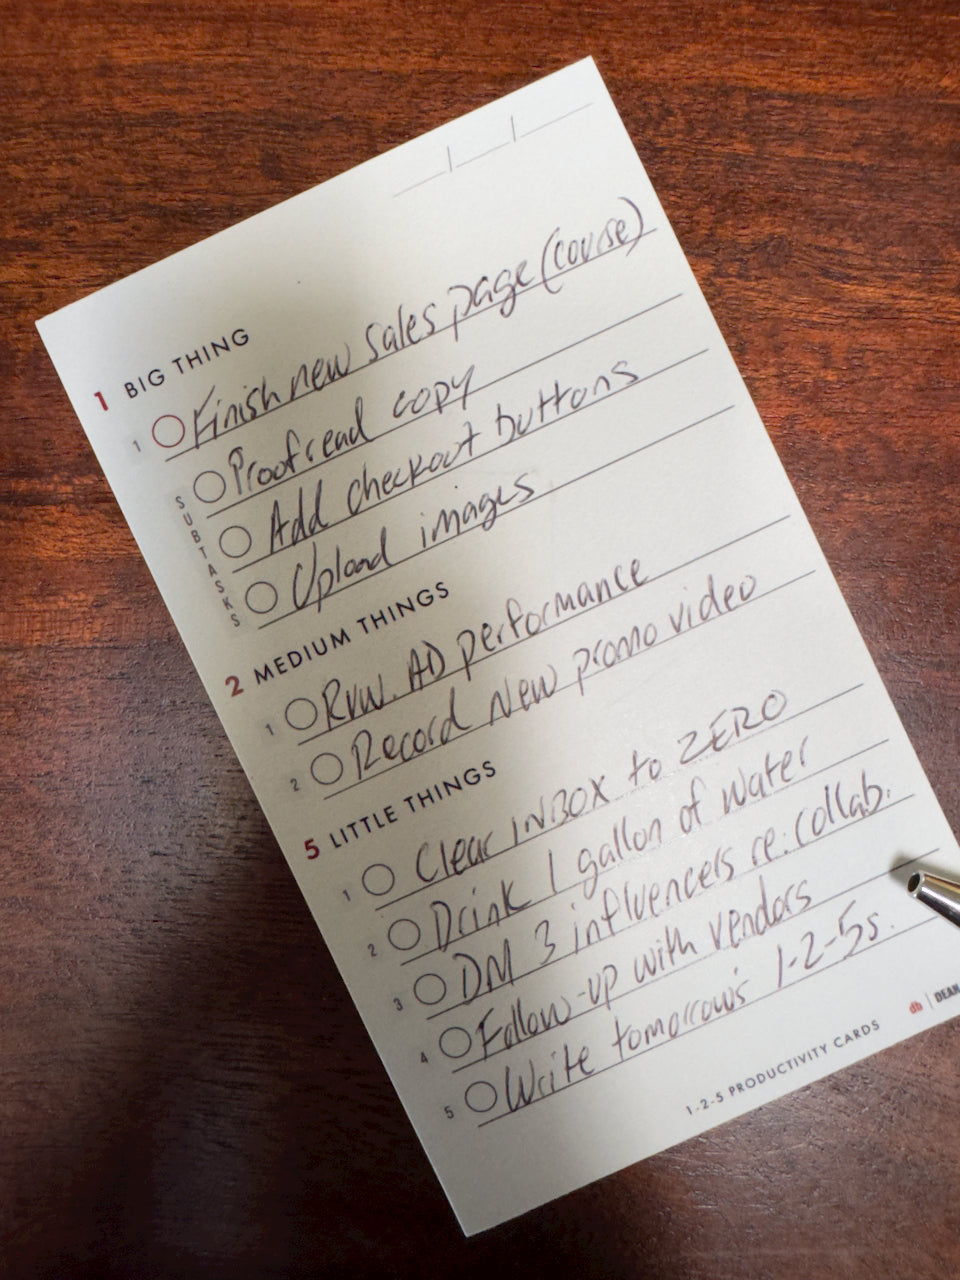 __/__/__
1 BIG THING
1 Finish new sales page (course)
SUBTASKS
Proofread copy
Add checkout buttons
Upload images
2 MEDIUM THINGS
1 Rvw. AD performance
2 Record New promo video
5 LITTLE THINGS
1 Clear INBOX to ZERO
2 Drink 1 gallon of water
3 DM 3 influencers re: collab.
4 Follow-up with vendors
5 Write tomorrow's 1-2-5s.
1-2-5 PRODUCTIVITY CARDS
db | DEAN